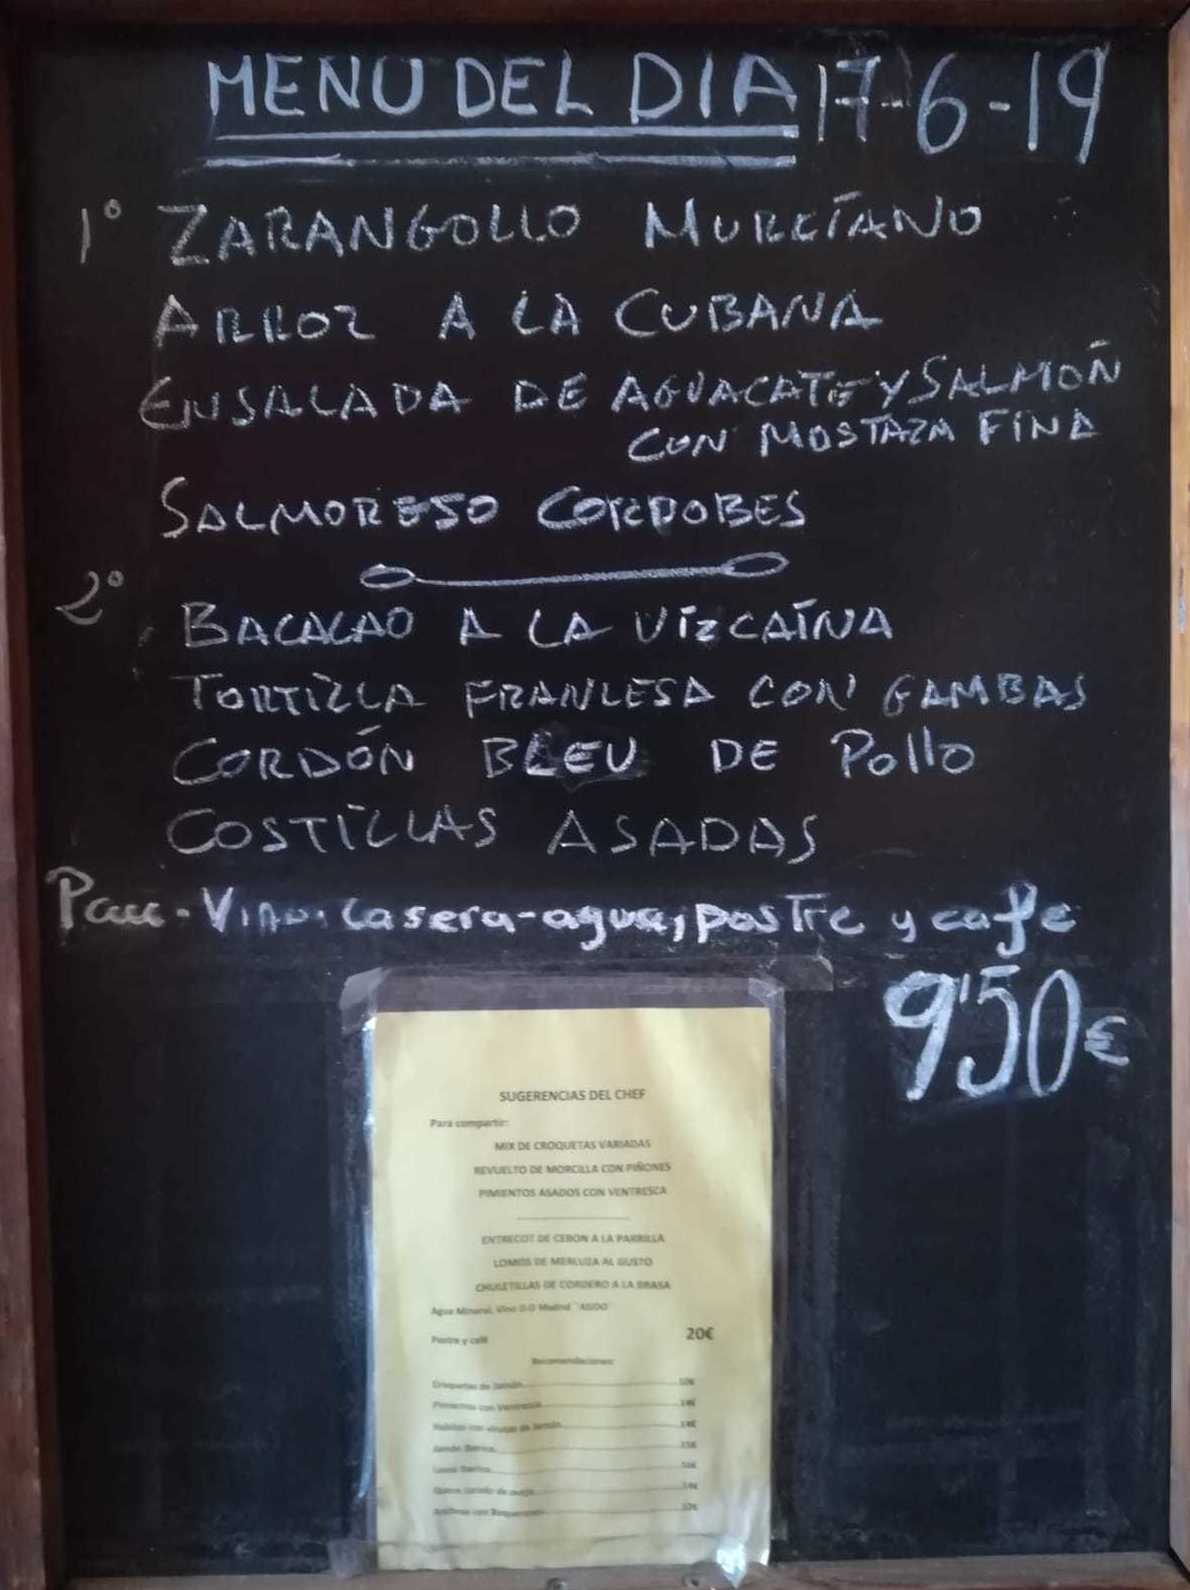 MENU DEL DIA 17-6-19
1º ZARANGOLLO MURCÍANO
ARROZ A LA CUBANA
ENSALADA DE AGUACATE Y SALMÓN
CON MOSTAZA FINA
SALMORESO CORDOBES
2º
BACALAO A LA VIZCAÍNA
TORTILLA FRANCESA CON GAMBAS
CORDÓN BLEU DE Pollo
COSTILLAS ASADAS
Pan - Vino. Casera - agua, postre y cafe
9'50€
SUGERENCIAS DEL CHEF
Para compartir:
MIX DE CROQUETAS VARIADAS
REVUELTO DE MORCILLA CON PIÑONES
PIMIENTOS ASADOS CON VENTRESCA
ENTRECOT DE CEBON A LA PARRILLA
LOMOS DE MERLUZA AL GUSTO
CHULETILLAS DE CORDERO A LA BRASA
Agua Mineral, Vino D.O Madrid
Postre y café 20€
Recomendaciones:
Croquetas de Jamón
Pimientos con Ventresca
Habitas con virutas de Jamón
Jamón Iberico
Lomo Iberico
Queso curado de oveja